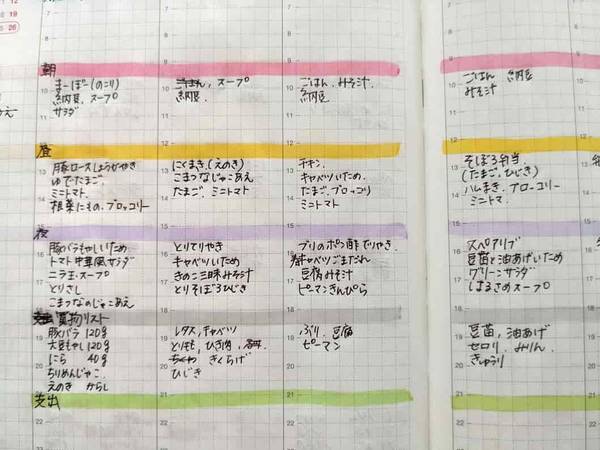 11 12
18 19
25 26
朝
まーぼー(のこり)
納豆、スープ
サラダ
ごはん、スープ
納豆
ごはん、みそ汁
納豆
ごはん 納豆
みそ汁
昼
豚ロースしょうがやき
ゆでたまご
ミニトマト
根菜にもの、ブロッコリー
にくまき(えのき)
こまつなじゃこあえ
たまご ミニトマト
チキン
キャベツいため
たまご、ブロッコリ
ミニトマト
そぼろ弁当
(たまご、ひじき)
ハムまき、ブロッコリー
ミニトマ
夜
豚バラもやしいため
トマト中華風サラダ
ニラ玉スープ
とりさし
こまつなのじゃこあえ
とりてりやき
キャベツいため
きのこ三昧みそ汁
とりそぼろひじき
ブリのポン酢てりやき
キャベツごまだれ
豆腐みそ汁
ピーマンきんぴら
スペアリブ
豆苗と油あげいため
グリーンサラダ
はるさめスープ
買物リスト
豚バラ 120g
大豆もやし 120g
にら 40g
ちりめんじゃこ
えのき からし
レタス、キャベツ
とりもも、ひき肉、
ちくわ きくらげ
ひじき
ぶり、豆腐
ピーマン
豆苗、油あげ
セロリ、みりん
きゅうり
支出